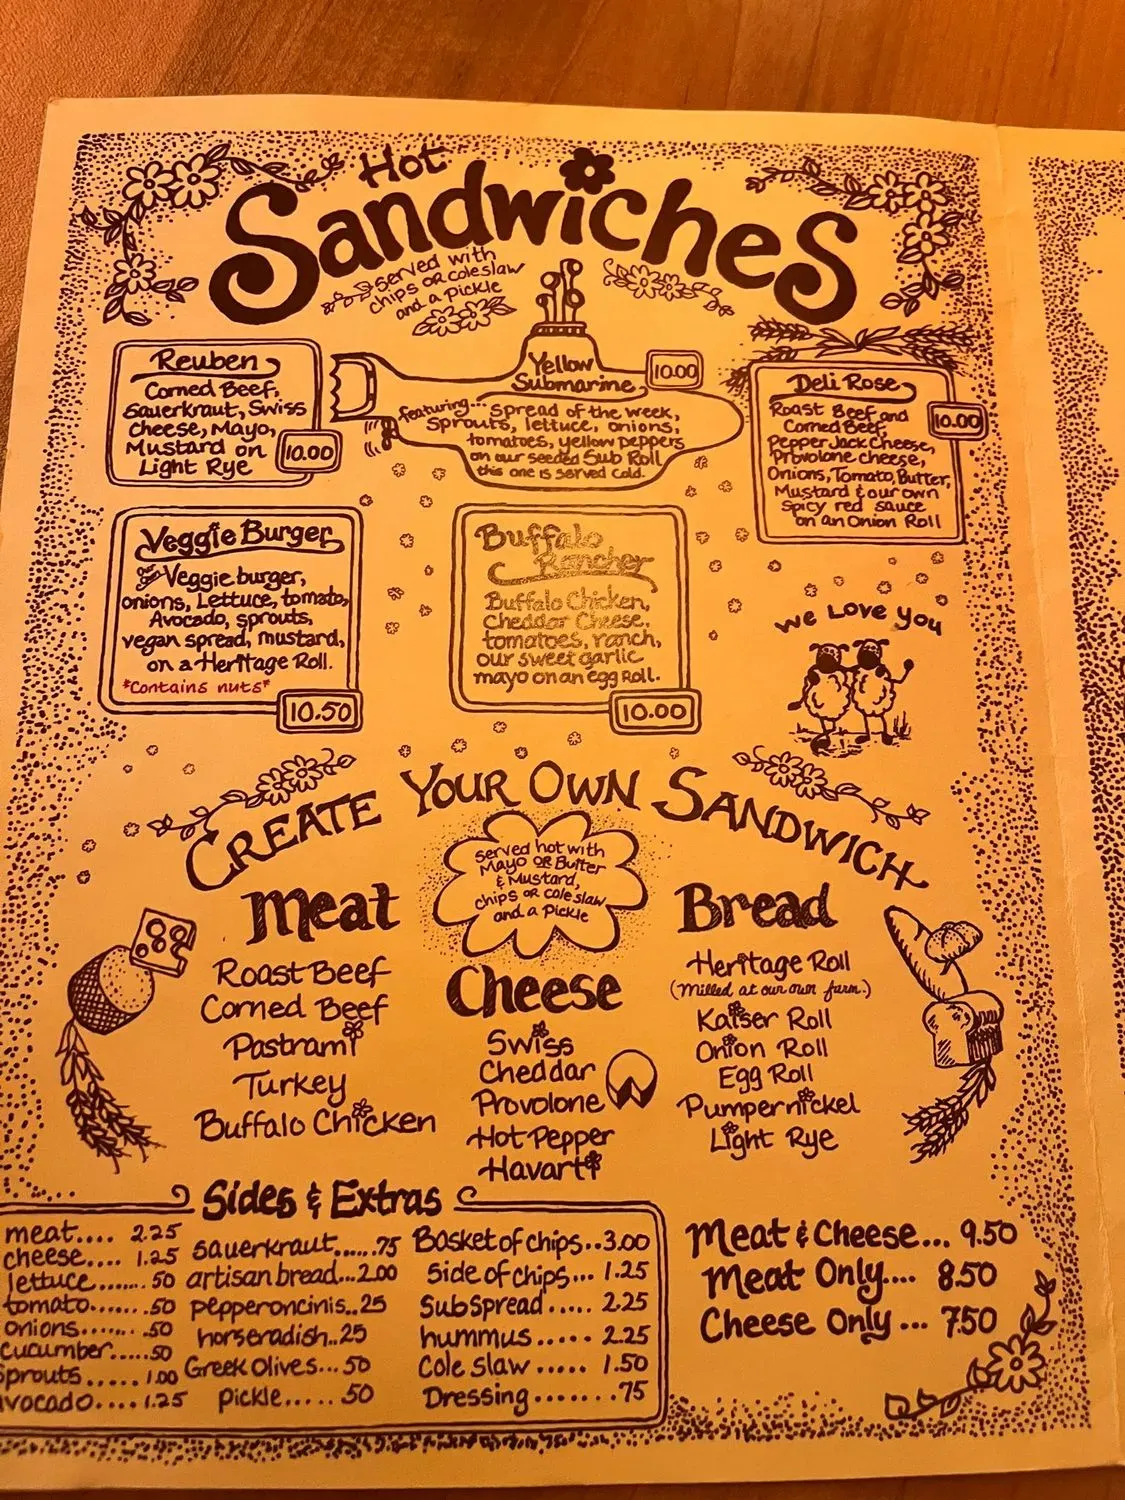 Hot
Sandwiches
served with
chips or coleslaw
and a pickle
Reuben
Corned Beef,
Sauerkraut, Swiss
Cheese, Mayo,
Mustard on
Light Rye
10.00
Yellow
Submarine
10.00
featuring... spread of the week,
sprouts, lettuce, onions,
tomatoes, yellow peppers
on our seeded Sub Roll
this one is served cold.
Deli Rose
10.00
Roast Beef and
Corned Beef,
Pepper Jack Cheese,
Provolone cheese,
Onions, Tomato, Butter,
Mustard & our own
Spicy red sauce
on an Onion Roll
Veggie Burger
Veggie burger,
onions, Lettuce, tomato,
Avocado, sprouts,
vegan spread, mustard,
on a Heritage Roll.
*Contains nuts*
10.50
Buffalo
Rancher
Buffalo Chicken,
Cheddar Cheese,
tomatoes, ranch,
our sweet garlic
mayo on an egg Roll.
10.00
We Love You
CREATE YOUR OWN SANDWICH
served hot with
Mayo OR Butter
& Mustard,
chips OR coleslaw
and a Pickle
Meat
Roast Beef
Corned Beef
Pastrami
Turkey
Buffalo Chicken
Cheese
Swiss
Cheddar
Provolone
Hot Pepper
Havarti
Bread
Heritage Roll
(Milled at our own farm.)
Kaiser Roll
Onion Roll
Egg Roll
Pumpernickel
Light Rye
Sides & Extras
meat.... 2.25
cheese.... 1.25
lettuce....... .50
tomato....... .50
onions....... .50
cucumber..... .50
sprouts..... 1.00
avocado.... 1.25
sauerkraut...... .75
artisan bread... 2.00
pepperoncinis.. 25
horseradish.. 25
Greek Olives... 50
pickle..... 50
Basket of chips.. 3.00
Side of chips... 1.25
Sub Spread..... 2.25
hummus..... 2.25
Cole slaw..... 1.50
Dressing....... .75
Meat & Cheese... 9.50
Meat Only.... 8.50
Cheese Only... 7.50